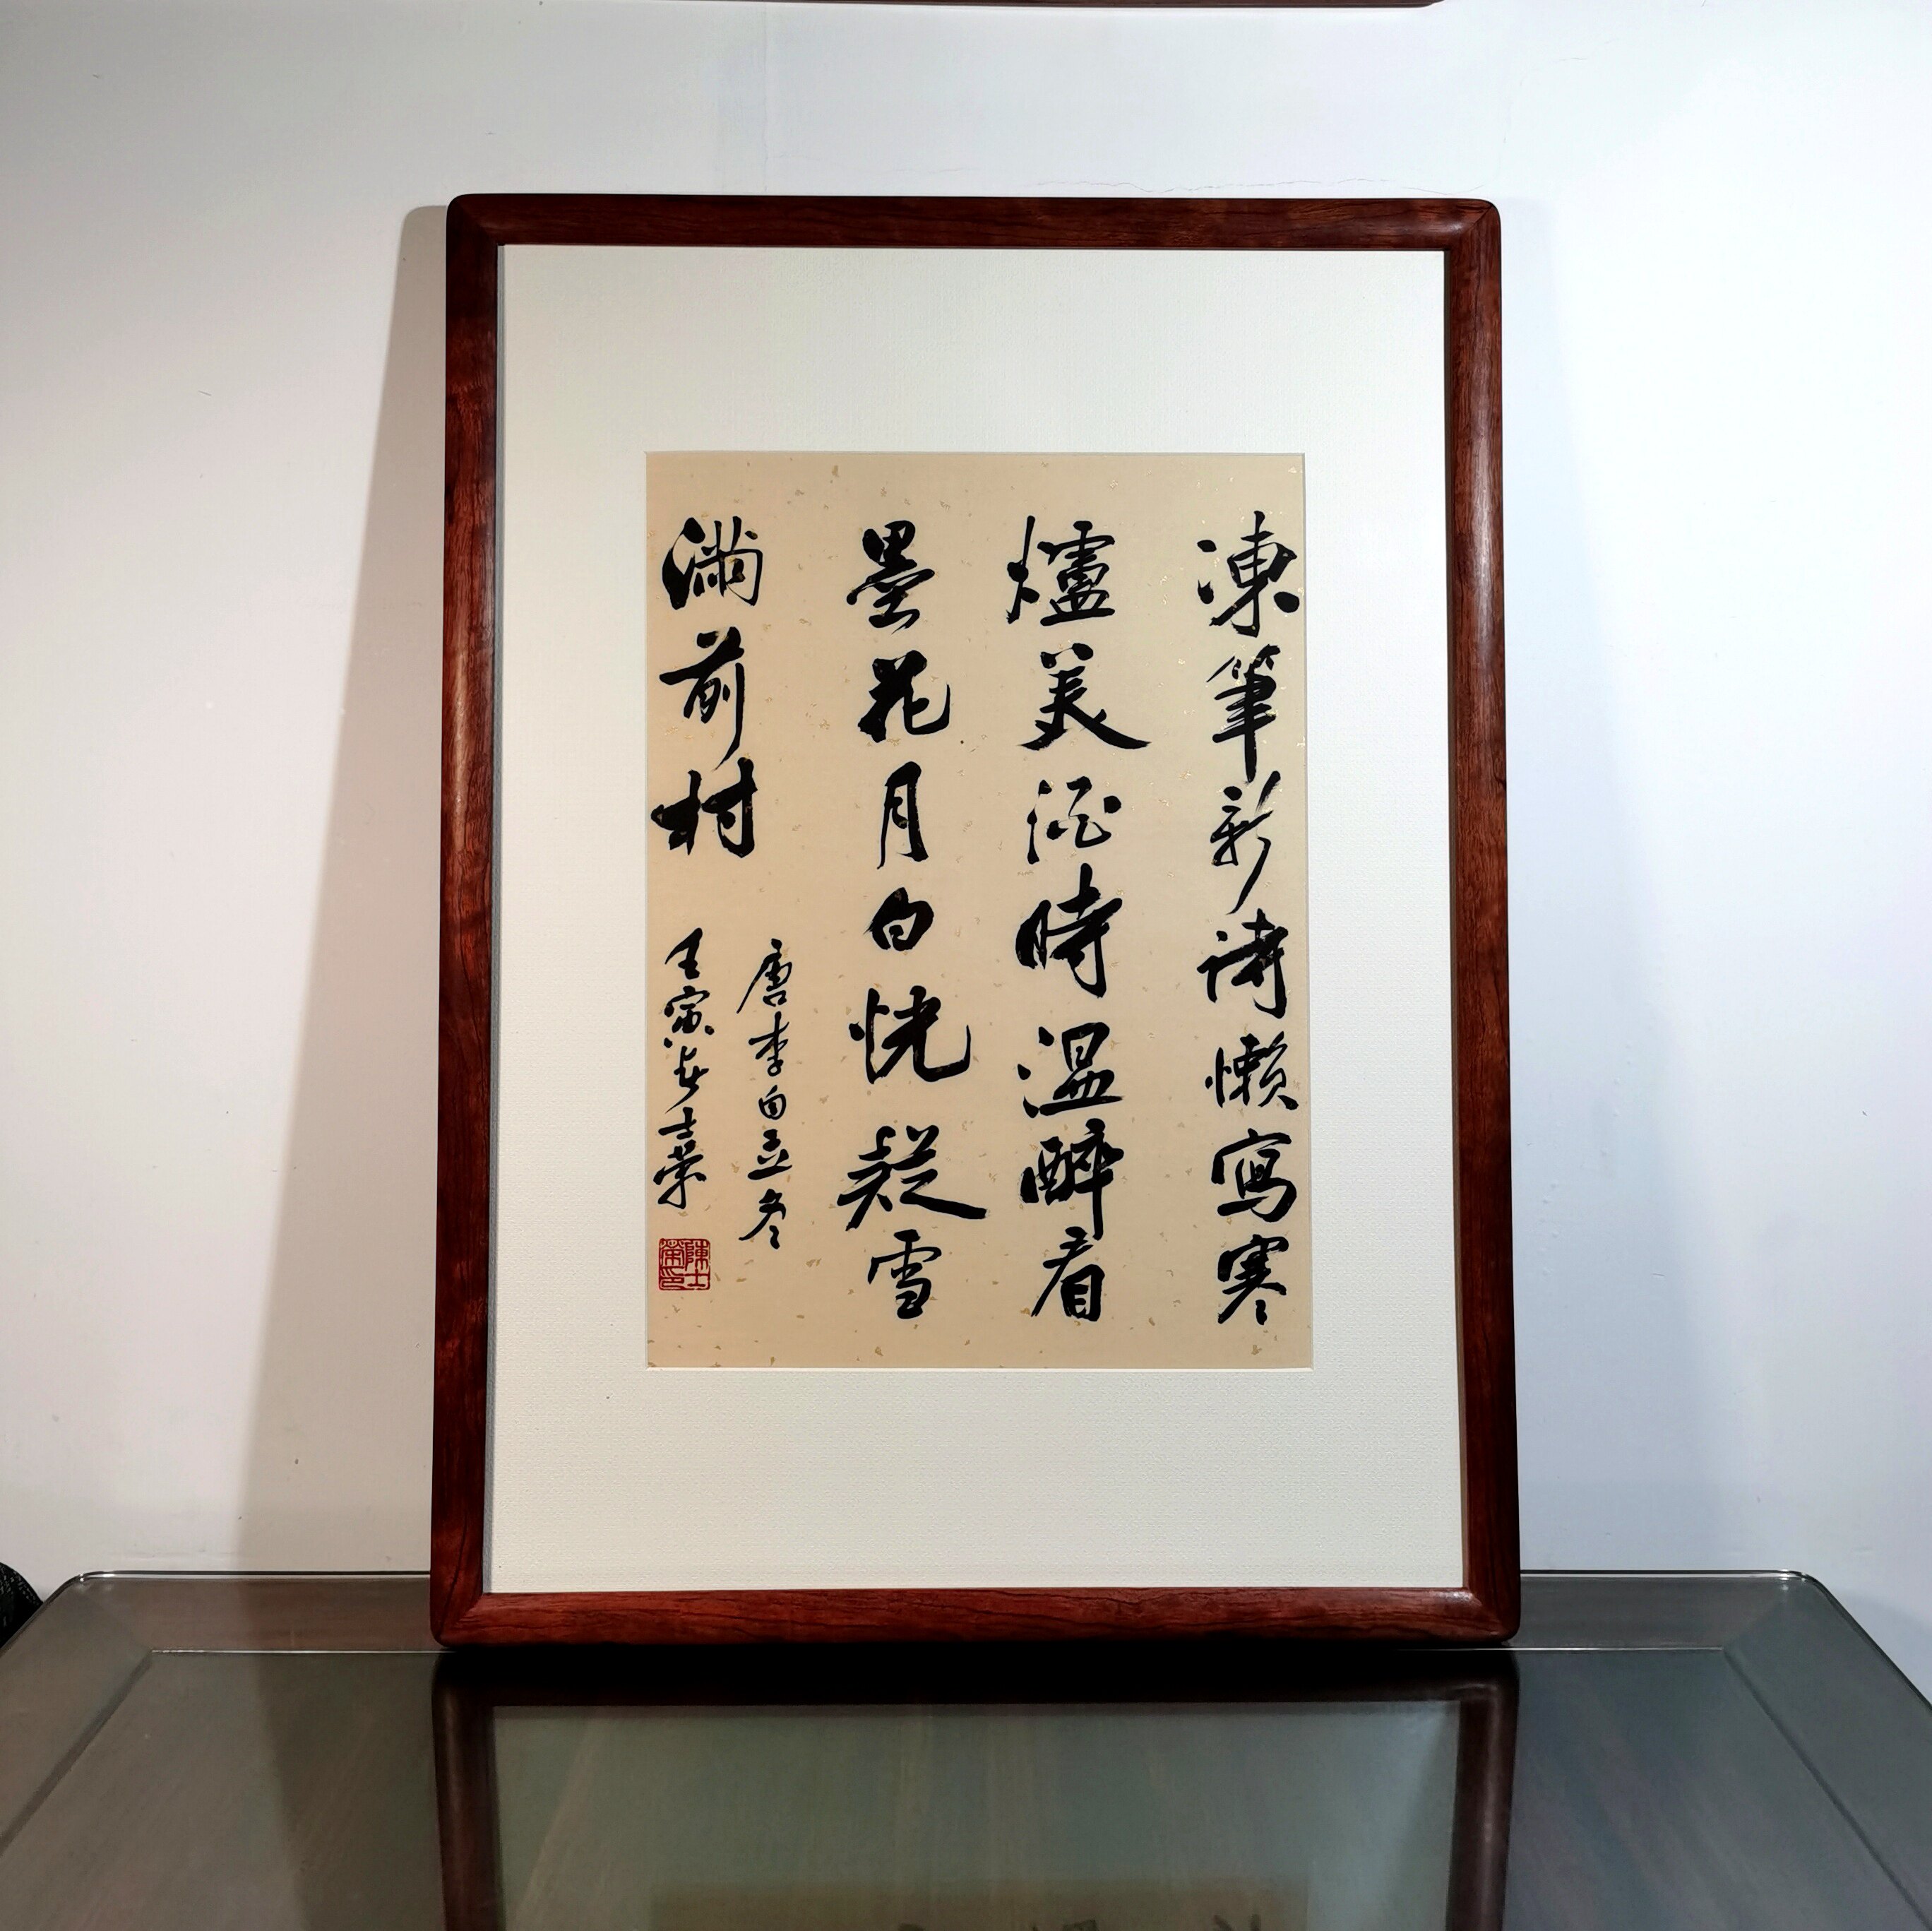 凍筆新詩懶寫寒
爐美酒時溫醉看
墨花月白恍疑雪
滿前村
唐李白立冬
壬寅冬士榮
陳士榮印